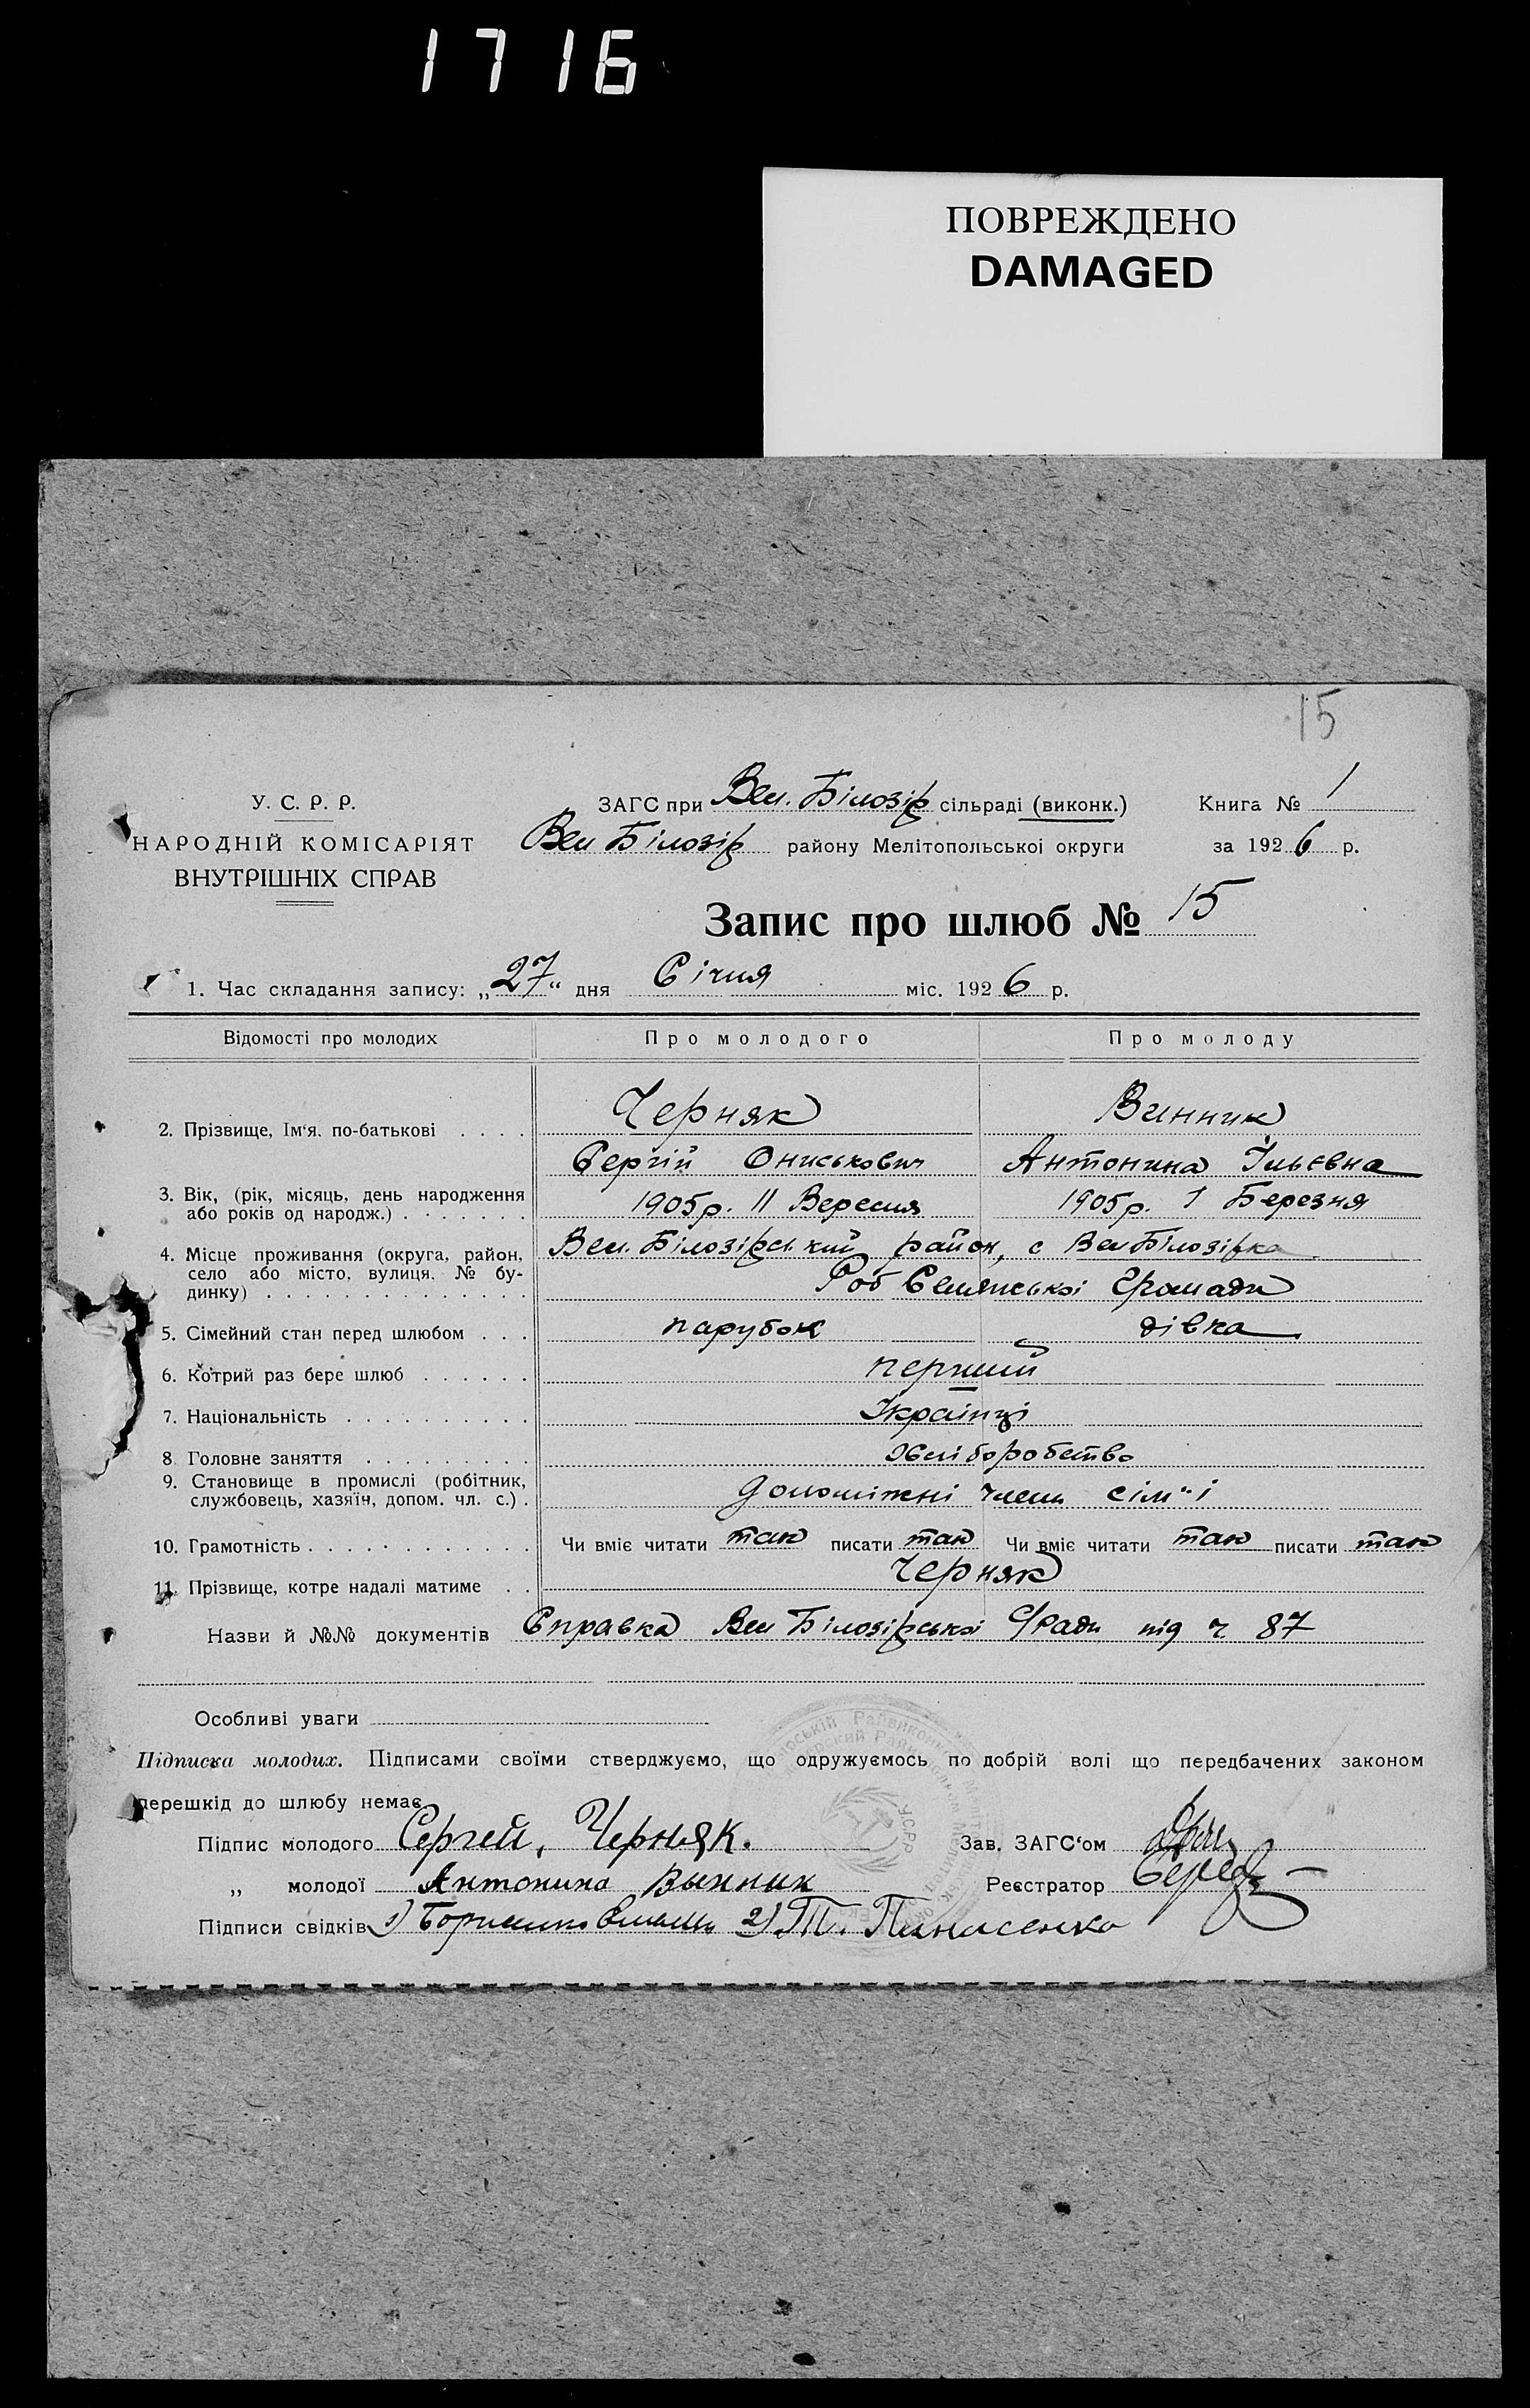 1716
ПОВРЕЖДЕНО
DAMAGED
15
У. С. Р. Р.
НАРОДНІЙ КОМІСАРІЯТ
ВНУТРІШНІХ СПРАВ
ЗАГС при Вел. Білозір сільраді (виконк.)
Вел Білозір району Мелітопольської округи
Книга № 1
за 1926 р.
Запис про шлюб № 15
1. Час складання запису: „27“ дня Січня міс. 1926 р.
Відомості про молодих Про молодого Про молоду
2. Прізвище, Ім'я, по-батькові . . . . Черняк Винник
Сергій Ониськович Антонина Ільєвна
3. Вік, (рік, місяць, день народження
або років од народж.) . . . . . . . 1905р. 11 Вересня 1905р. 1 Березня
4. Місце проживання (округа, район, Вел. Білозірський район, с Вел Білозірка
село або місто, вулиця, № бу-
динку) . . . . . . . . . . . . . . Роб Селянської Громади
5. Сімейний стан перед шлюбом . . . парубок дівка
6. Котрий раз бере шлюб . . . . . . перший
7. Національність . . . . . . . . . . Українці
8. Головне заняття . . . . . . . . . хліборобство
9. Становище в промислі (робітник,
службовець, хазяїн, допом. чл. с.) . допоміжні члени сім"ї
10. Грамотність . . . . . . . . . . . . Чи вміє читати так писати так Чи вміє читати так писати так
11. Прізвище, котре надалі матиме . . Черняк
Назви й №№ документів Справка Вел Білозірської С/Ради під ч 87
Особливі уваги
Підписка молодих. Підписами своїми стверджуємо, що одружуємось по добрій волі що передбачених законом
перешкід до шлюбу немає
Підпис молодого Сергей, Черняк. Зав. ЗАГС'ом
„ молодої Антонина Вынник Реєстратор
Підписи свідків 1) 2) Т. Панасенко
УСРР